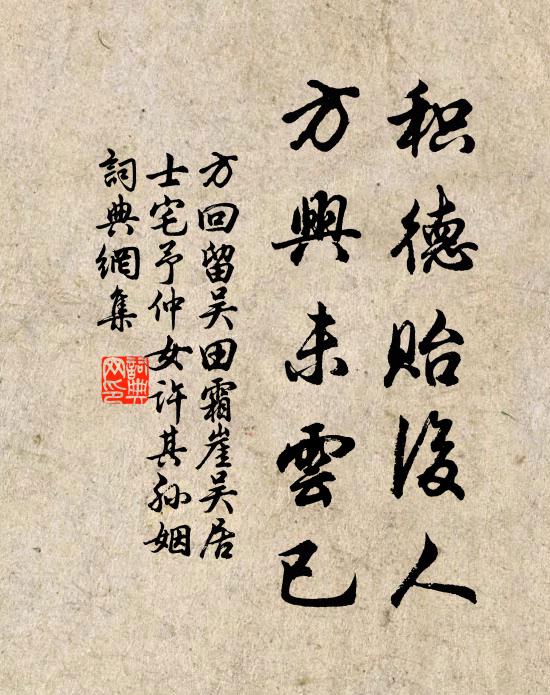 积德贻後人
方興未雲已
方回留吴田霜崖吴居
士宅予仲女许其孙姻
詞典網集
詞典
网印